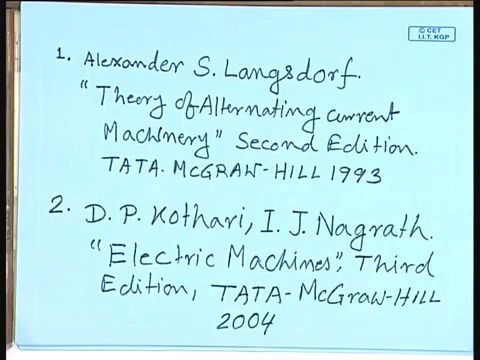 © CET
I.I.T. KGP
1. Alexander S. Langsdorf.
"Theory of Alternating current
Machinery" Second Edition.
TATA. McGRAW-HILL 1993
2. D. P. Kothari, I. J. Nagrath.
"Electric Machines", Third
Edition, TATA-McGraw-HILL
2004